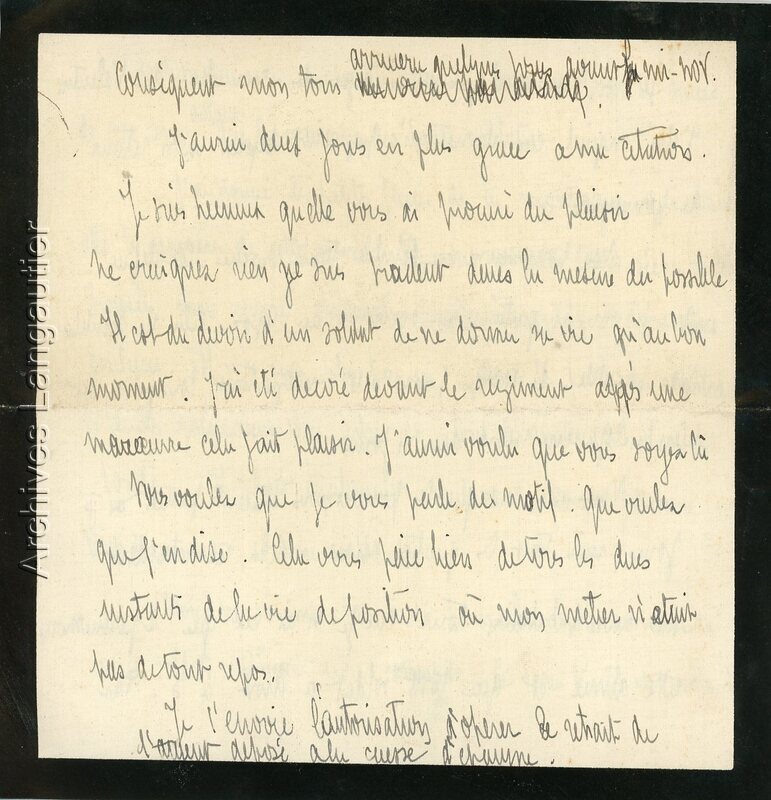 arrivera quelques jours avant la mi-nov.
Conséquent mon tour
J'aurai deux jours en plus grace a ma citation.
Je suis heureux quelle vous ai procuré du plaisir
ne craignez rien je suis prudent dans la mesure du possible
Il est du devoir d'un soldat de ne donner sa vie qu'au bon
moment. J'ai été decoré devant le regiment après une
manœuvre cela fait plaisir. J'aurai voulu que vous soyez là
Vous voulez que je vous parle du motif. Que voulez
que j'en dise. Cela vous paie bien de tous les durs
instants de la vie de position où mon métier n'etait
pas de tout repos.
Je t'envoie l'autorisation d'opérer le retrait de
l'argent déposé a la caisse d'epargne.
Archives Langautier